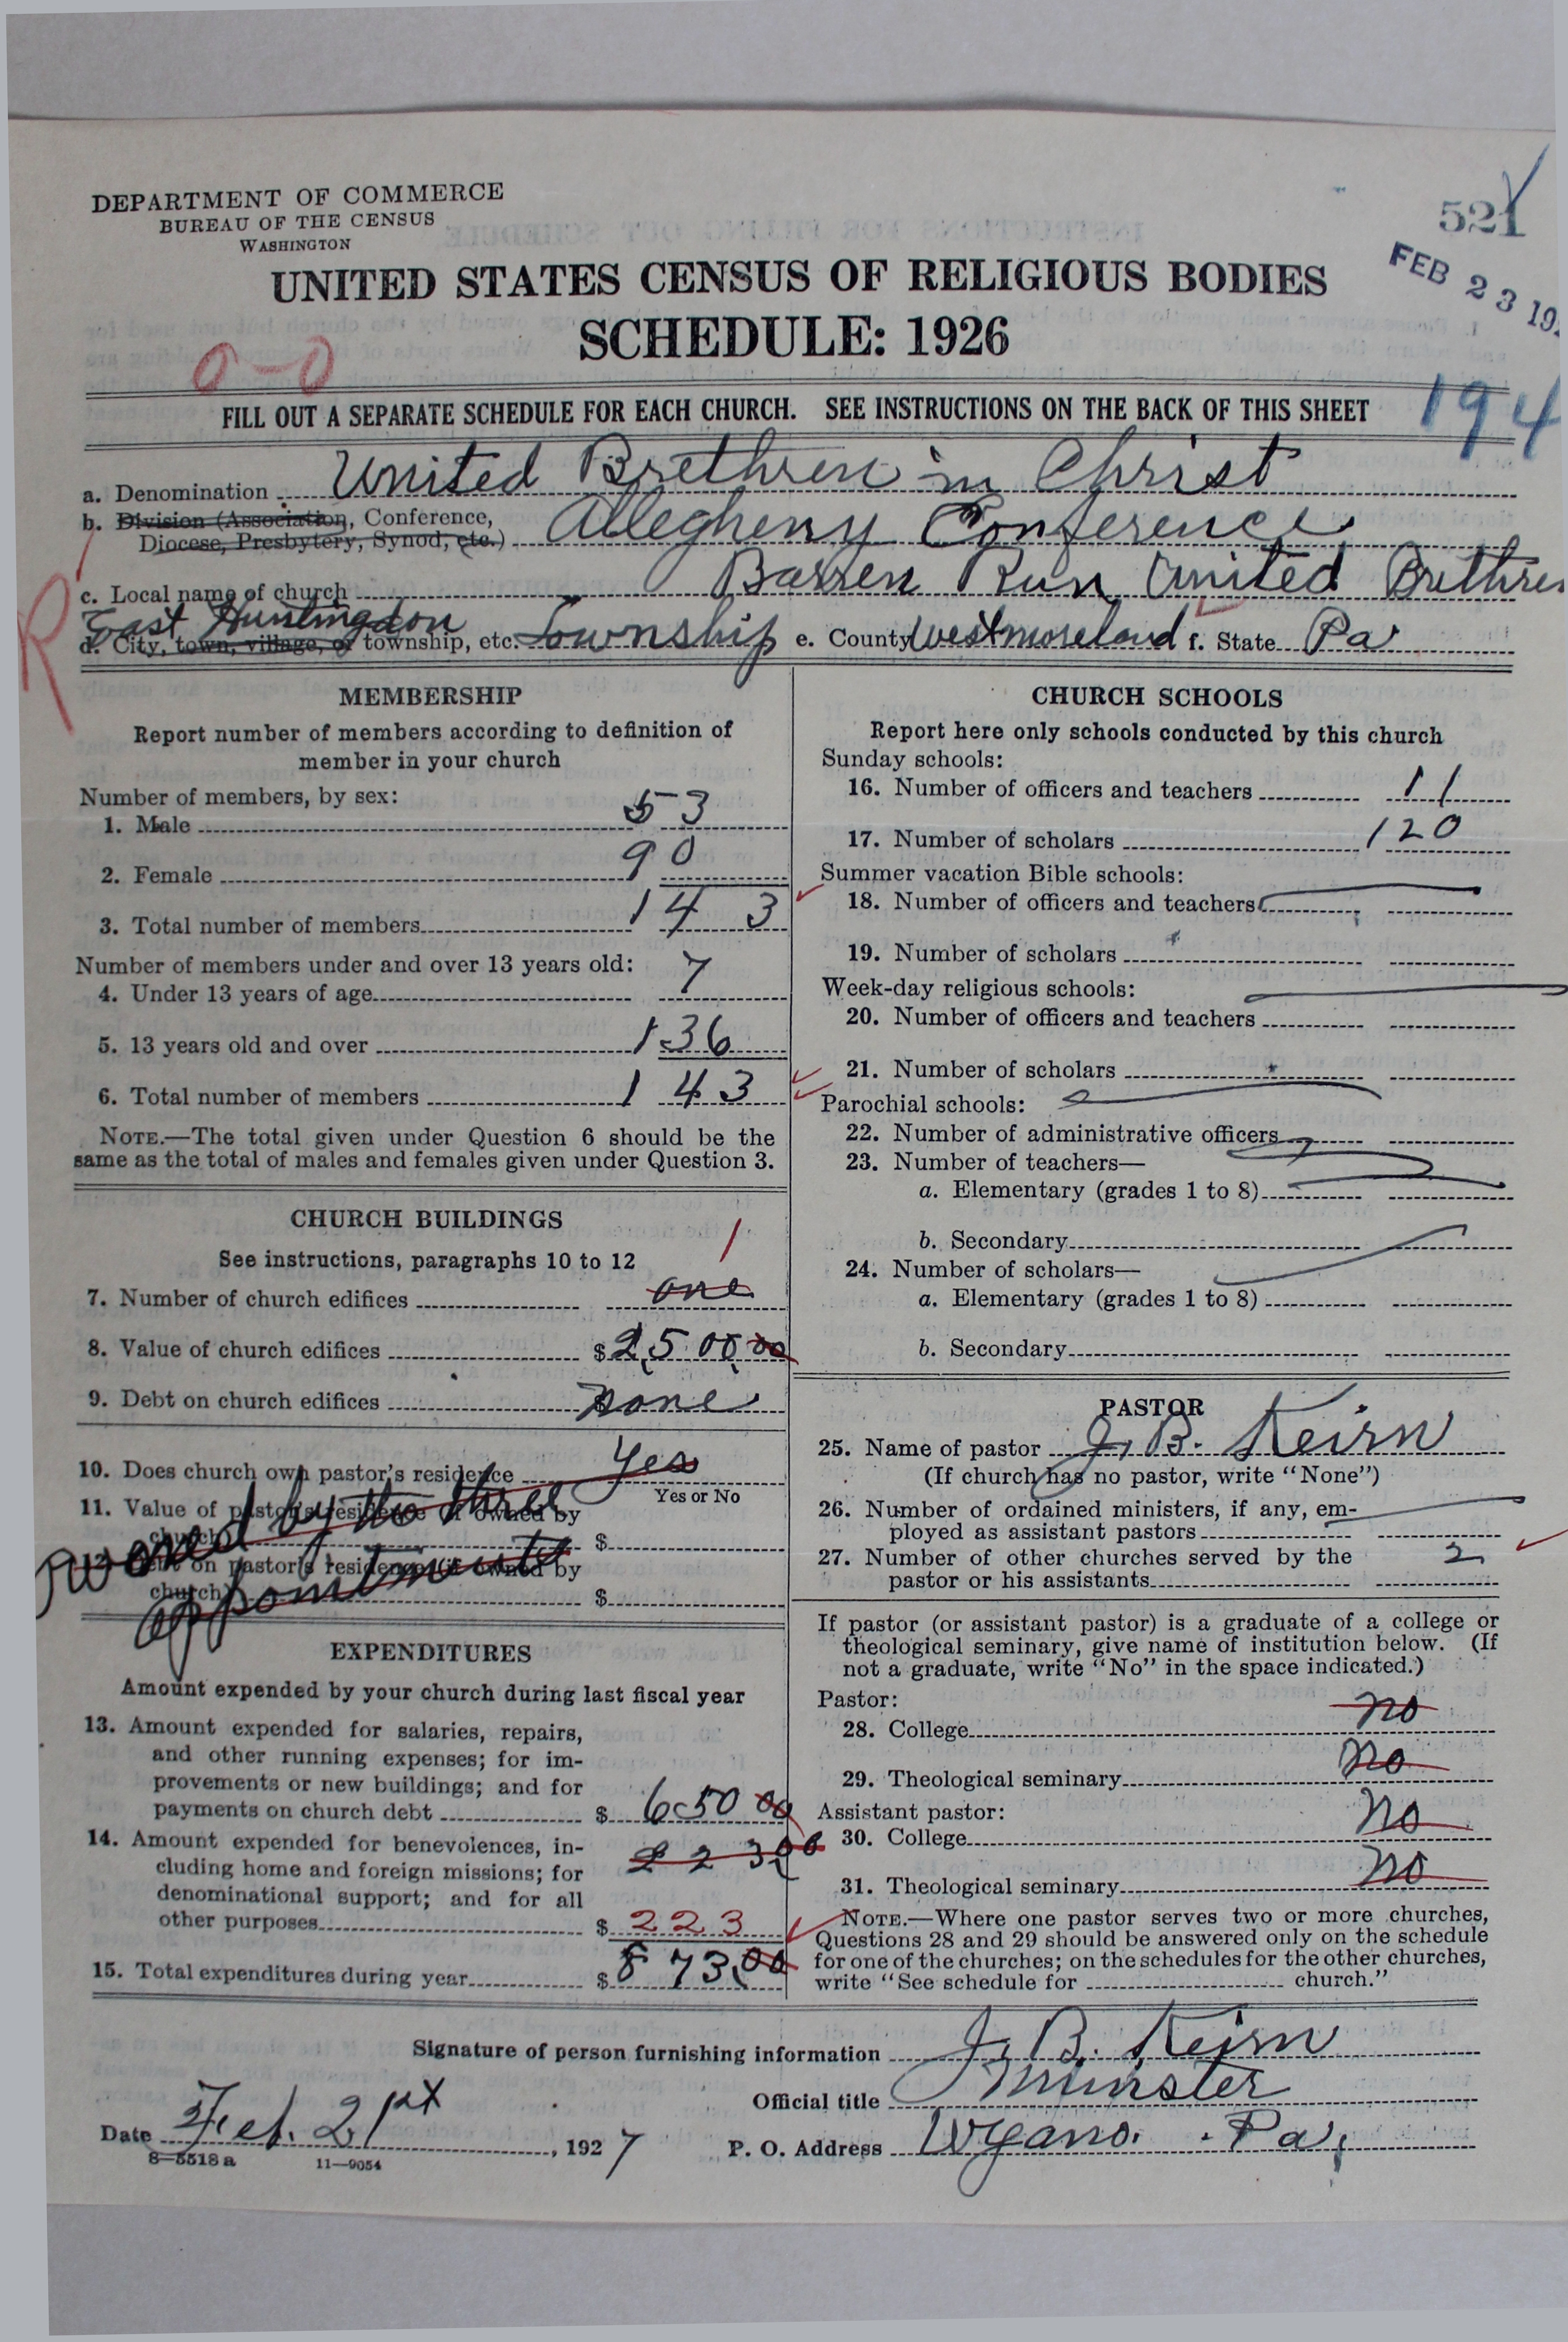 DEPARTMENT OF COMMERCE
BUREAU OF THE CENSUS
WASHINGTON
521
FEB 23 19
UNITED STATES CENSUS OF RELIGIOUS BODIES
SCHEDULE: 1926
0-0
194
FILL OUT A SEPARATE SCHEDULE FOR EACH CHURCH. SEE INSTRUCTIONS ON THE BACK OF THIS SHEET
a. Denomination United Brethren in Christ
b. Division (Association, Conference,
Diocese, Presbytery, Synod, etc.) Allegheny Conference
c. Local name of church Barren Run United Brethren
R
East Huntingdon
d. City, town, village, or township, etc. Township e. County Westmoreland f. State Pa
MEMBERSHIP
Report number of members according to definition of
member in your church
Number of members, by sex:
1. Male 53
2. Female 90
3. Total number of members 143
Number of members under and over 13 years old:
4. Under 13 years of age 7
5. 13 years old and over 136
6. Total number of members 143
NOTE.—The total given under Question 6 should be the
same as the total of males and females given under Question 3.
CHURCH BUILDINGS
See instructions, paragraphs 10 to 12
1
7. Number of church edifices one
8. Value of church edifices $2,500.00
9. Debt on church edifices none
10. Does church own pastor's residence Yes
Yes or No
11. Value of pastor's residence (if owned by
church) $
owned by the three
on pastor's residence (if owned by
church) $
appointments
EXPENDITURES
Amount expended by your church during last fiscal year
13. Amount expended for salaries, repairs,
and other running expenses; for im-
provements or new buildings; and for
payments on church debt $ 650 00
14. Amount expended for benevolences, in-
cluding home and foreign missions; for
denominational support; and for all
other purposes $ 223
223.00
15. Total expenditures during year $ 873.00
CHURCH SCHOOLS
Report here only schools conducted by this church
Sunday schools:
16. Number of officers and teachers 11
17. Number of scholars 120
Summer vacation Bible schools:
18. Number of officers and teachers
19. Number of scholars
Week-day religious schools:
20. Number of officers and teachers
21. Number of scholars
Parochial schools:
22. Number of administrative officers
23. Number of teachers—
a. Elementary (grades 1 to 8)
b. Secondary
24. Number of scholars—
a. Elementary (grades 1 to 8)
b. Secondary
PASTOR
25. Name of pastor J. B. Keirn
(If church has no pastor, write "None")
26. Number of ordained ministers, if any, em-
ployed as assistant pastors
27. Number of other churches served by the
pastor or his assistants 2
If pastor (or assistant pastor) is a graduate of a college or
theological seminary, give name of institution below. (If
not a graduate, write "No" in the space indicated.)
Pastor:
28. College no
29. Theological seminary no
Assistant pastor:
30. College no
31. Theological seminary no
NOTE.—Where one pastor serves two or more churches,
Questions 28 and 29 should be answered only on the schedule
for one of the churches; on the schedules for the other churches,
write "See schedule for church."
Signature of person furnishing information J. B. Keirn
Official title minister
Date Feb. 21st, 1927
P. O. Address Wyano. Pa.
8—5518 a 11—9054